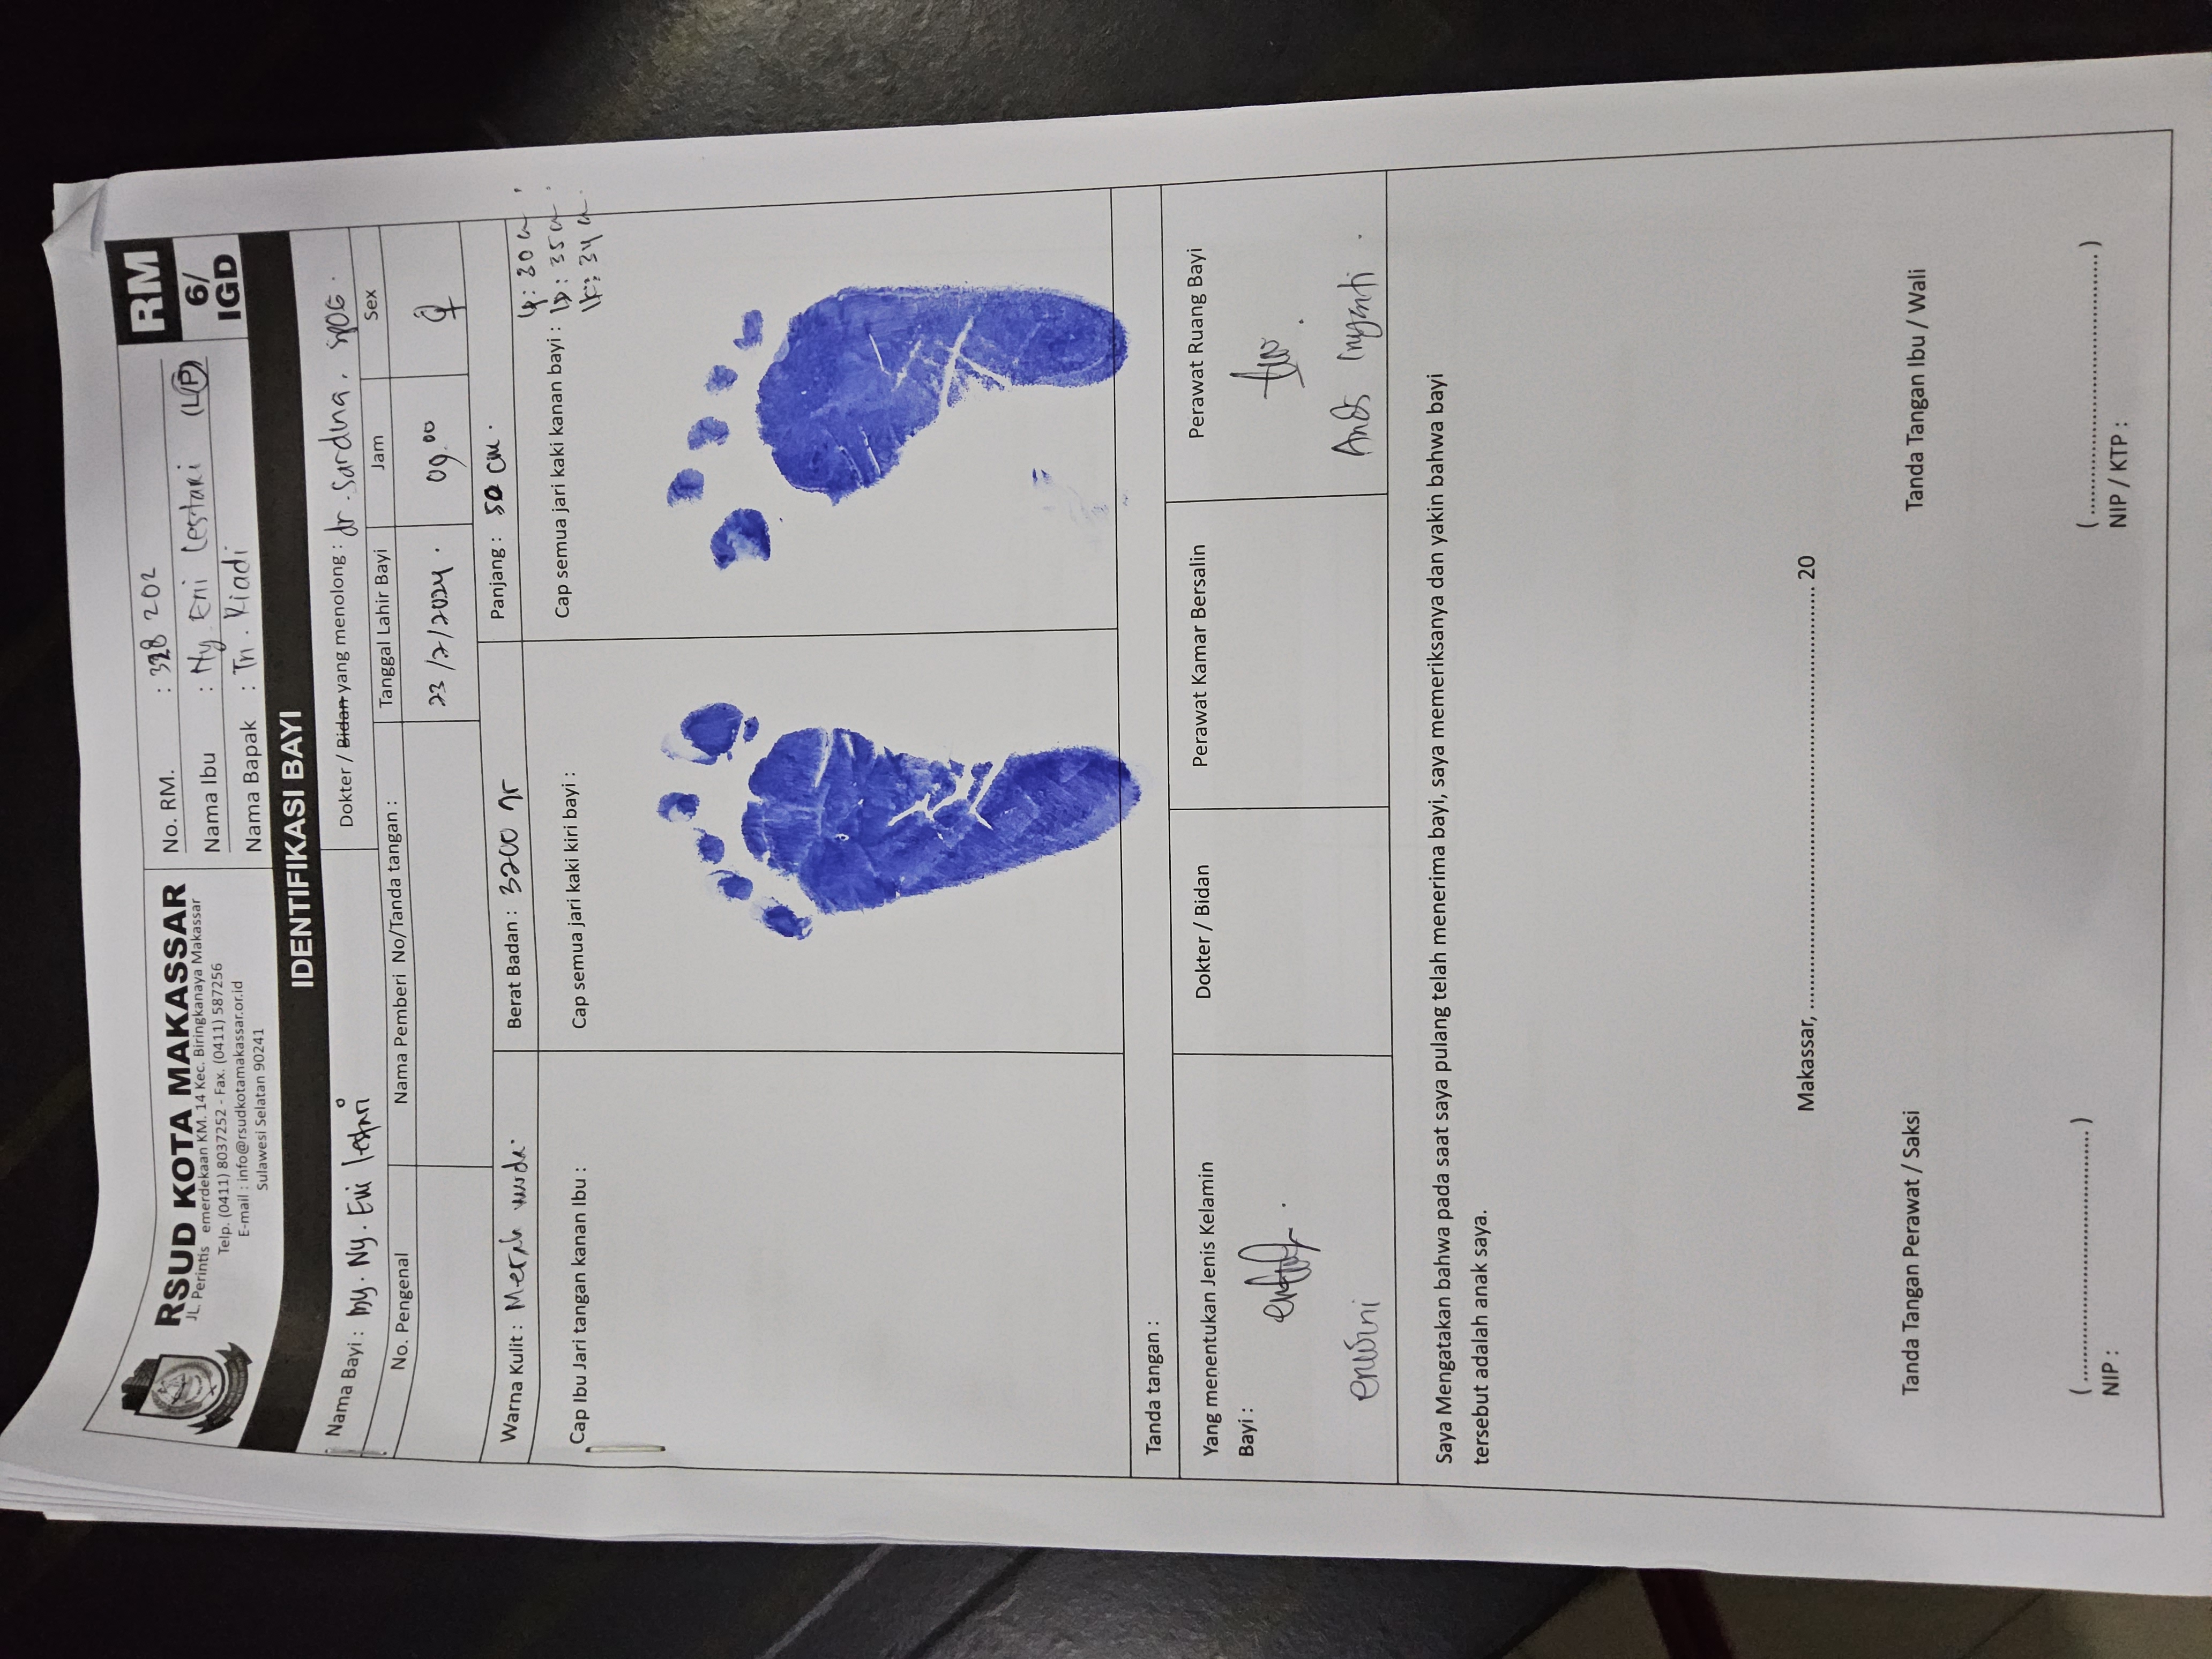 RSUD KOTA MAKASSAR
JL. Perintis emerdekaan KM. 14 Kec. Biringkanaya Makassar
Telp. (0411) 8037252 - Fax. (0411) 587256
E-mail : info@rsudkotamakassar.or.id
Sulawesi Selatan 90241
No. RM. : 328 202
Nama Ibu : Ny. Eni Lestari (L/P)
Nama Bapak : Tn. Riadi
RM
6/
IGD
IDENTIFIKASI BAYI
Nama Bayi : by. Ny. Eni lestari
Dokter / Bidan yang menolong : dr. Sardna, SpOG.
No. Pengenal
Nama Pemberi No/Tanda tangan :
Tanggal Lahir Bayi
Jam
Sex
23/2/2024.
09.00
♀
Warna Kulit : Merah muda.
Berat Badan : 3200 gr
Panjang : 50 cm.
Cap Ibu Jari tangan kanan Ibu :
Cap semua jari kaki kiri bayi :
Cap semua jari kaki kanan bayi :
LP : 30 cm
LD : 35 cm
LK : 34 cm
Tanda tangan :
Yang menentukan Jenis Kelamin
Bayi :
Dokter / Bidan
Perawat Kamar Bersalin
Perawat Ruang Bayi
Andi
Saya Mengatakan bahwa pada saat saya pulang telah menerima bayi, saya memeriksanya dan yakin bahwa bayi
tersebut adalah anak saya.
Makassar, ........................................................ 20
Tanda Tangan Perawat / Saksi
Tanda Tangan Ibu / Wali
( ........................................ )
( ........................................ )
NIP :
NIP / KTP :